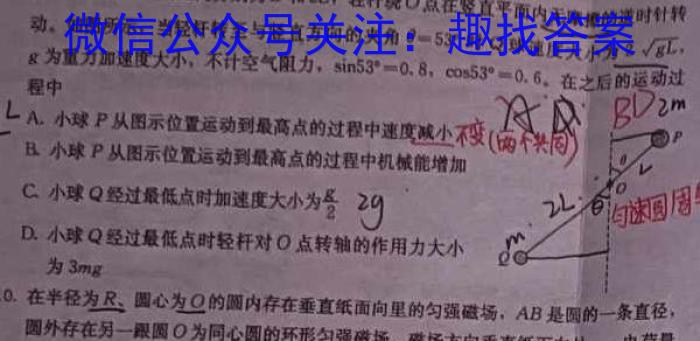 轻杆绕O点在竖直平面内 逆时针转
动。 53° 速度大小为 √gL,
微信公众号关注：趣找答案
g 为重力加速度大小，不计空气阻力，sin53°=0.8，cos53°=0.6。在之后的运动过
程中
A. 小球 P 从图示位置运动到最高点的过程中速度减小 不变(两个共同)
B. 小球 P 从图示位置运动到最高点的过程中机械能增加
C. 小球 Q 经过最低点时加速度大小为g/2 2g
D. 小球 Q 经过最低点时轻杆对 O 点转轴的作用力大小
为 3mg
A BD 2m
P
θ L
O
2L θ 匀速圆周
m
Q
0. 在半径为 R、圆心为 O 的圆内存在垂直纸面向里的匀强磁场，AB 是圆的一条直径，
圆外存在另一跟圆 O 为同心圆的环形匀强磁场